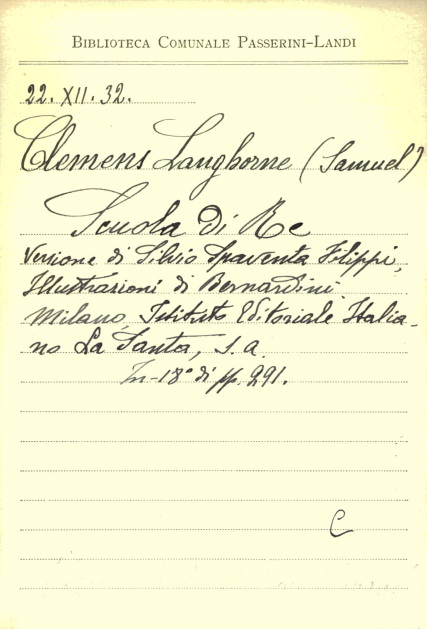 BIBLIOTECA COMUNALE PASSERINI-LANDI
22. XII. 32.
Clemens Langhorne (Samuel)
Scuola di Re
Versione di Silvio Spaventa Filippi,
Illustrazioni di Bernardini.
Milano, Istituto Editoriale Italia-
no La Santa, s.a.
In-18° di pp. 291.
C